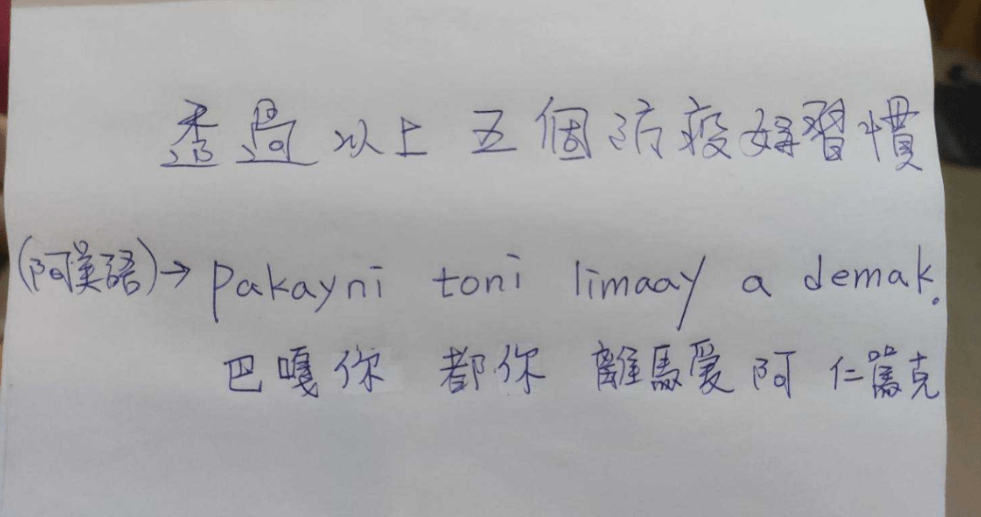 透過以上五個防疫好習慣
(阿美語)→ pakayni toni limaay a demak.
巴嘎你 都你 離馬爱 阿 仁篤克